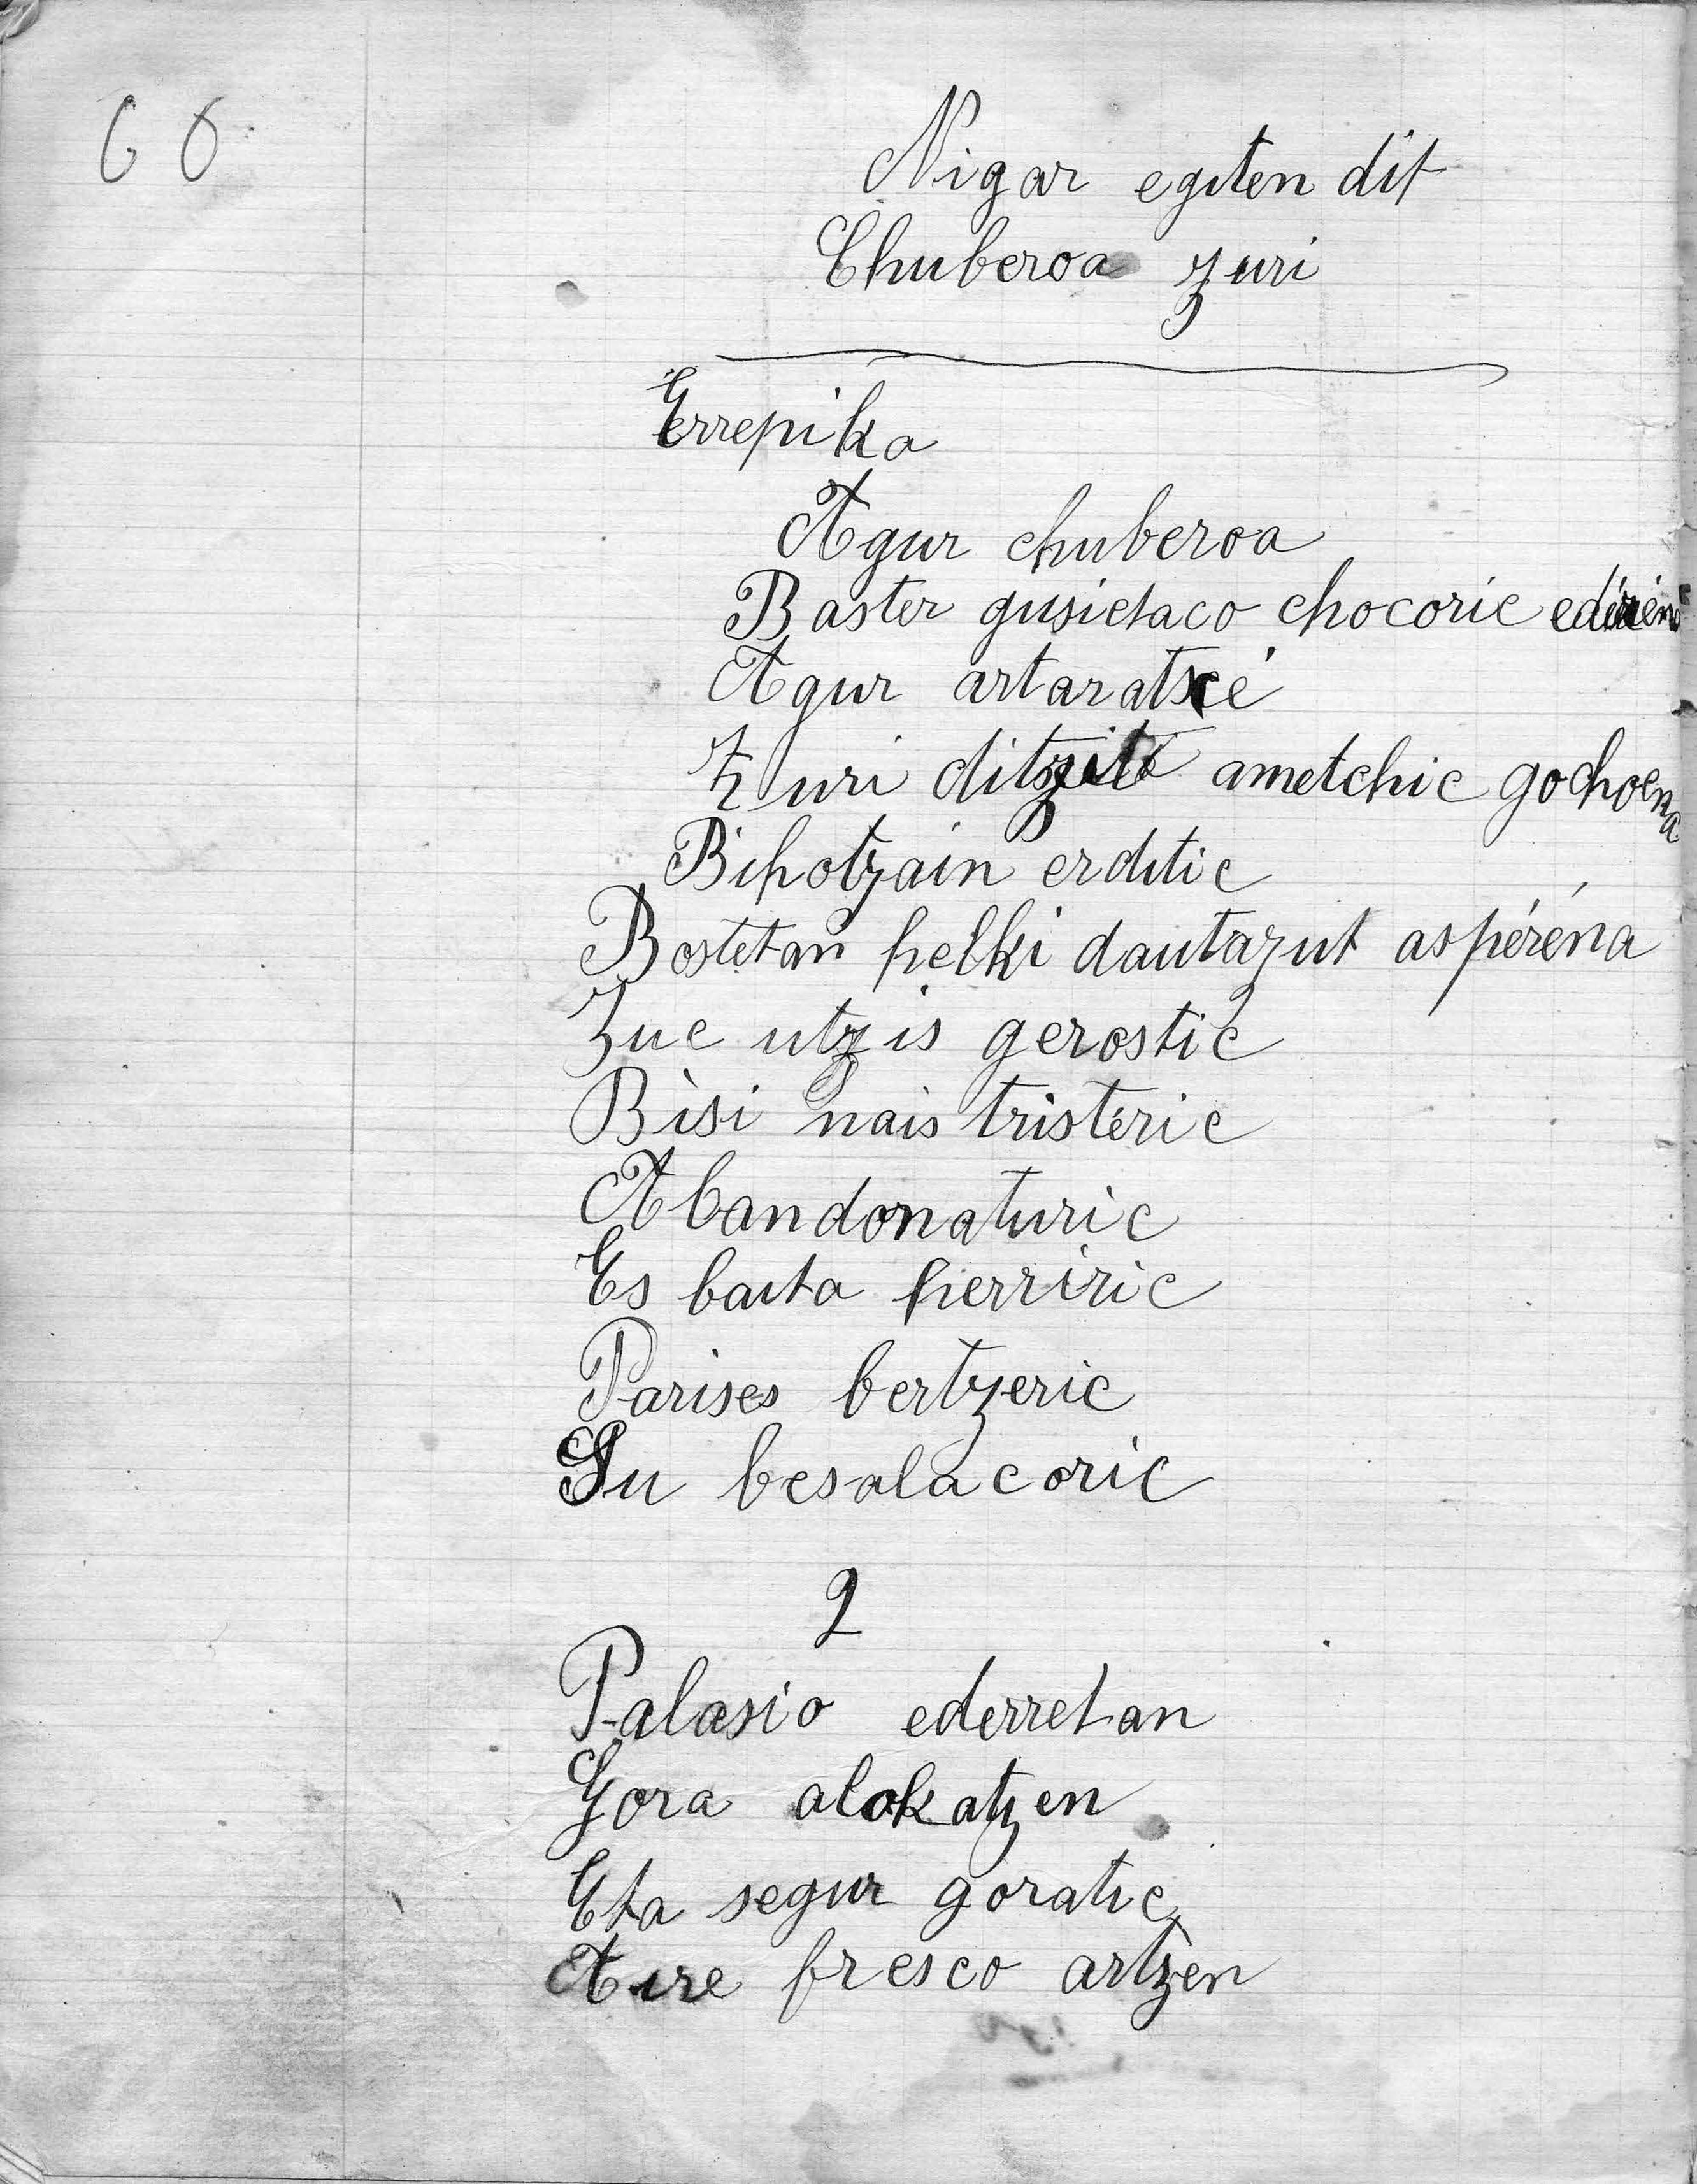 66
Nigar egiten dit
Chuberoa zuri
Errepika
Agur chuberoa
Baster gusietaco chocoric
Agur artaratsé
Zuri ametchic gochoena
Bihotzain erditic
Bostetan helki dautazut aspéréna
Zuc utzis gerostic
Bisi nais tristeric
Abandonaturic
Es baita herriric
Parises bertzeric
Su besalacoric
2
Palasio ederretan
Gora alokatzen
Eta segur goratic
Aire fresco artzen